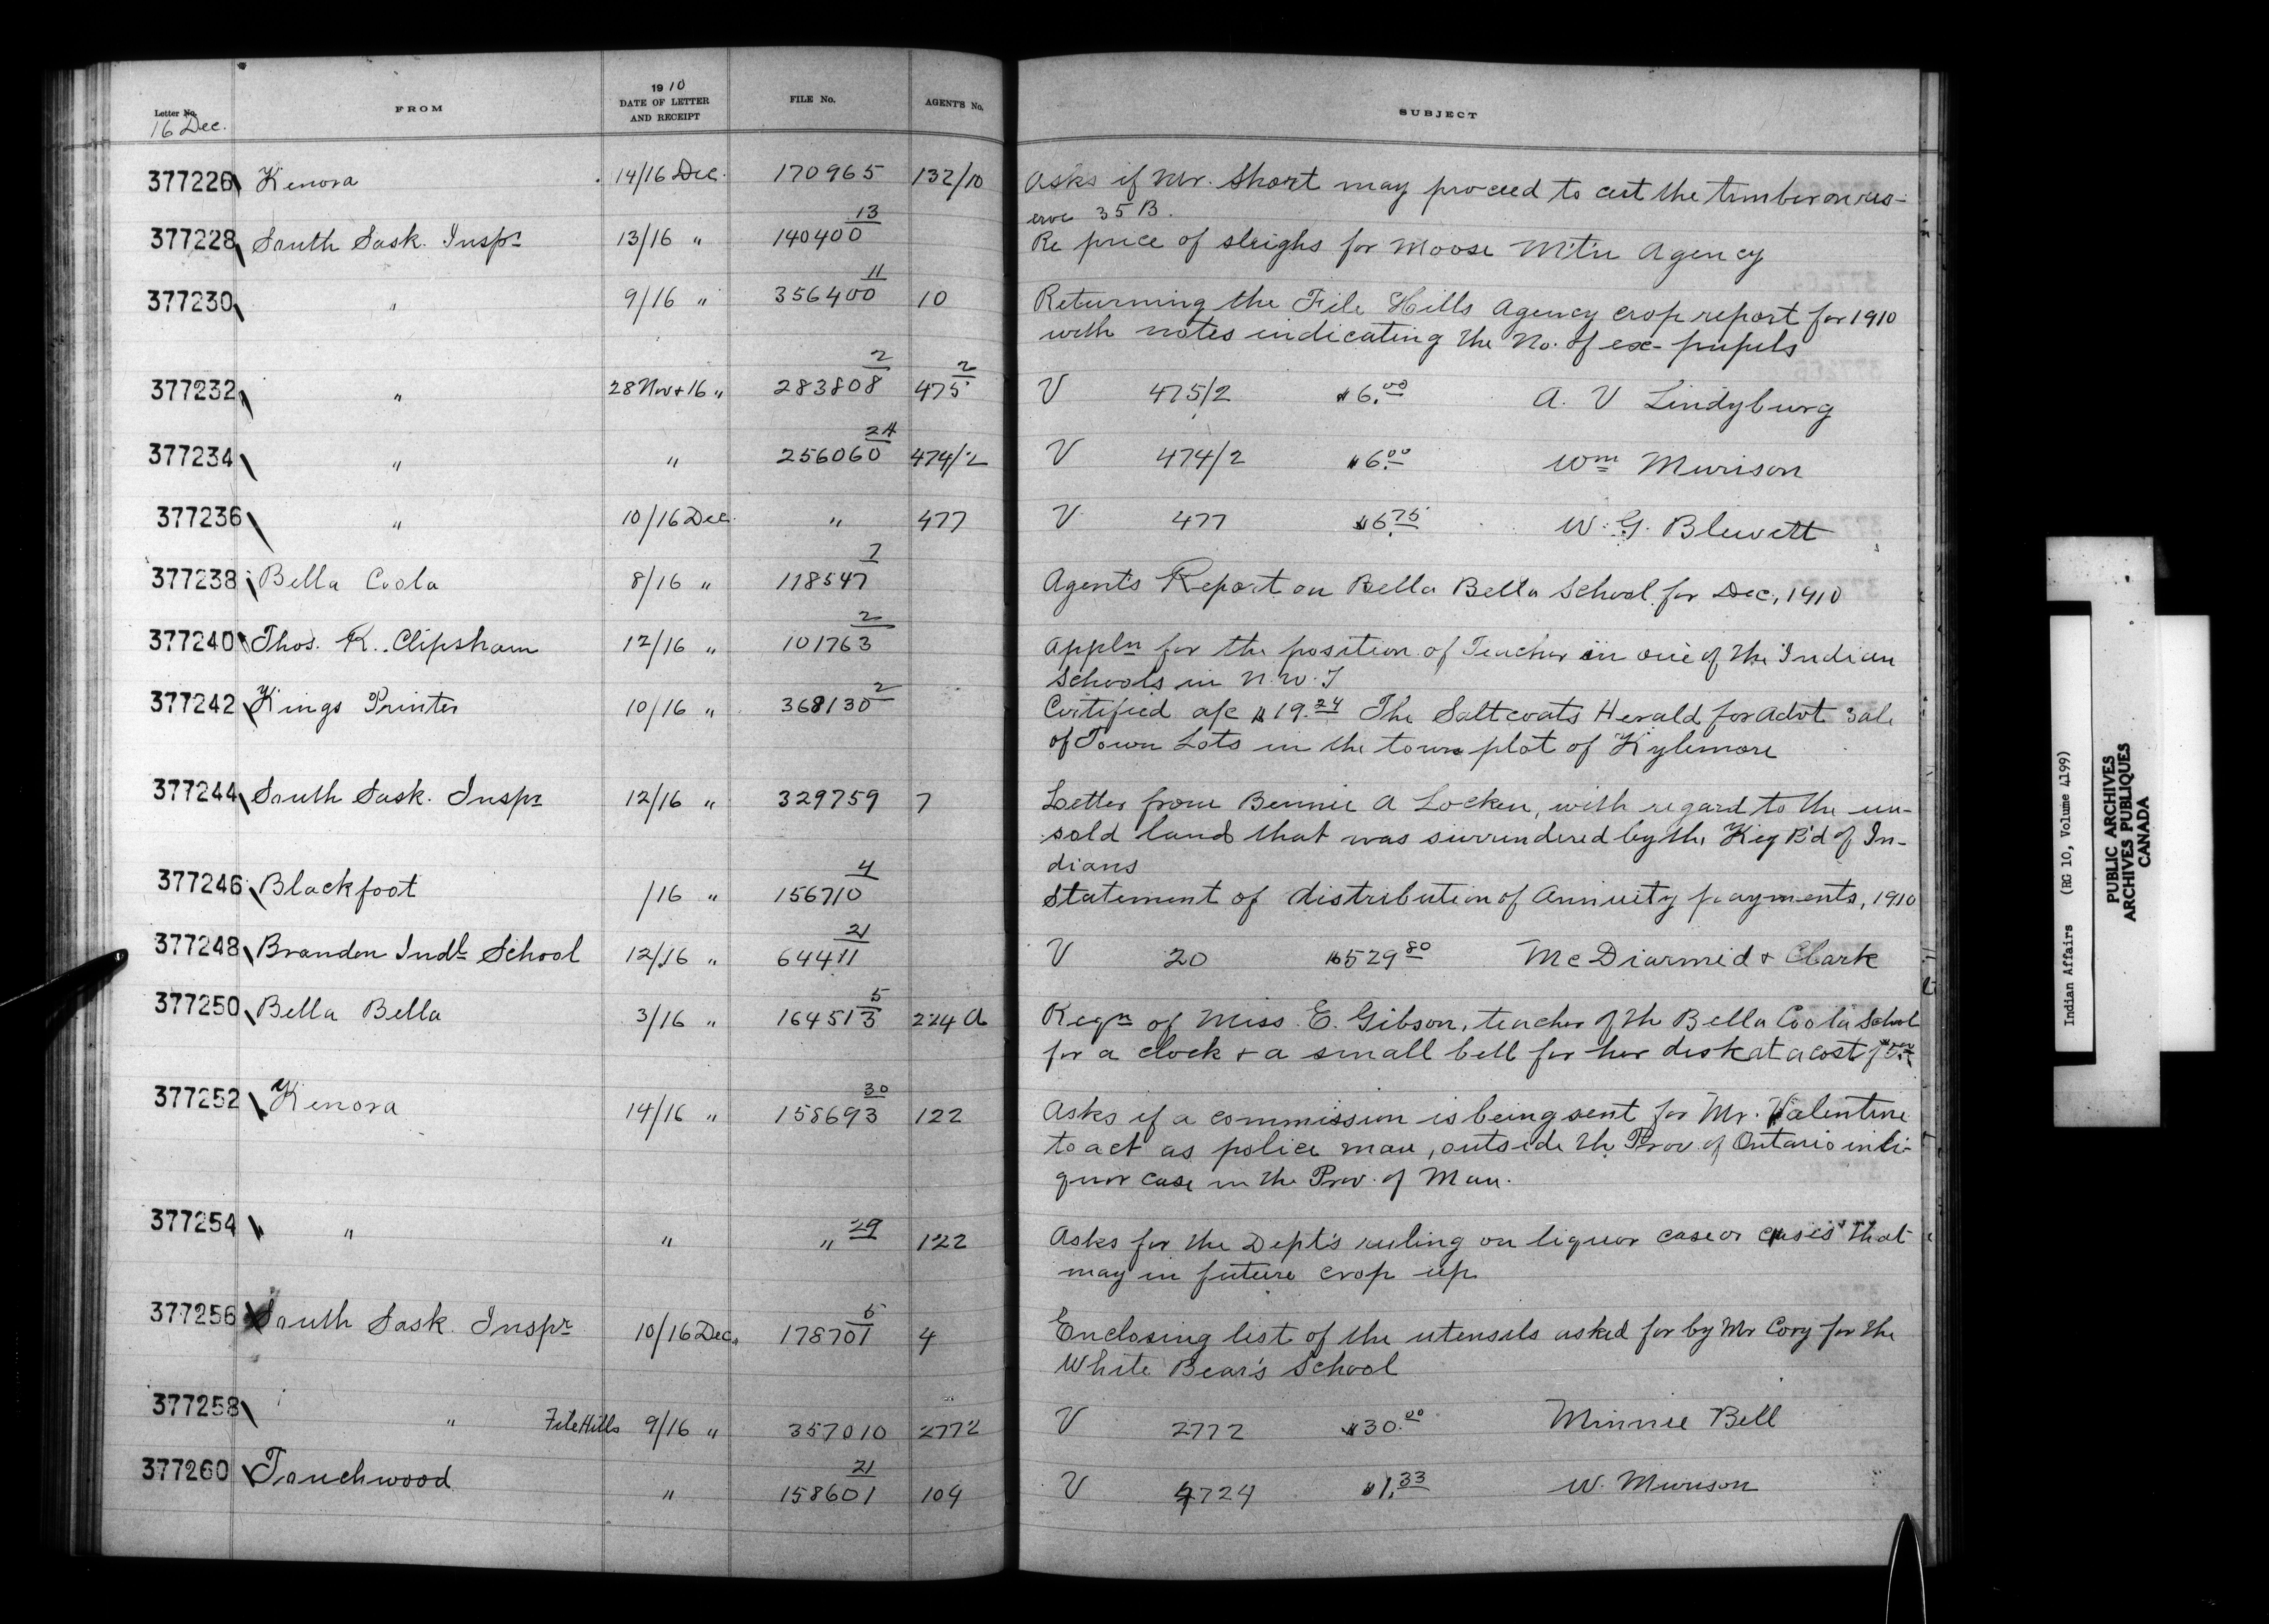 1910
Letter No. FROM DATE OF LETTER AND RECEIPT FILE No. AGENT'S No. SUBJECT
16 Dec.
377226 Kenora 14/16 Dec. 170965 132/10 Asks if Mr. Short may proceed to cut the timber on res-
erve 35 B.
377228 South Sask. Inspr 13/16 " 140400 13 Re price of sleighs for Moose Mt'n Agency
377230 " 9/16 " 356400 11 10 Returning the File Hills Agency crop report for 1910
with notes indicating the No. of ex-pupils
377232 " 28 Nov + 16 " 283808 2 475 2 V 475/2 $6.00 A. V Lindyburg
377234 " " 256060 24 474/2 V 474/2 $6.00 Wm Murison
377236 " 10/16 Dec. " 477 V 477 $6.75 W. G. Blewett
377238 Bella Coola 8/16 " 118547 7 Agent's Report on Bella Bella School for Dec, 1910
377240 Thos. R. Clipsham 12/16 " 101763 2 Appln for the position of Teacher in one of the Indian
Schools in N. W. T
377242 Kings Printer 10/16 " 368130 2 Certified a/c $19.24 The Saltcoats Herald for advt sale
of Town Lots in the town plot of Kylemore
377244 South Sask. Inspr 12/16 " 329759 7 Letter from Bennie A Locken, with regard to the un-
sold land that was surrendered by the Key B'd of In-
dians
377246 Blackfoot /16 " 156710 4 Statement of distribution of Annuity payments, 1910
377248 Brandon Indl School 12/16 " 64411 21 V 20 $529.80 McDiarmid + Clark
377250 Bella Bella 3/16 " 164513 5 224 a Reqn of Miss. E. Gibson, teacher of the Bella Coola School
for a clock + a small bell for her desk at a cost of
377252 Kenora 14/16 " 158693 30 122 Asks if a commission is being sent for Mr. Valentine
to act as police man, outside the Prov. of Ontario in li-
quor case in the Prov. of Man.
377254 " " " 29 122 Asks for the Dept's ruling on liquor case or cases that
may in future crop up
377256 South Sask. Inspr 10/16 Dec. 178701 5 4 Enclosing list of the utensils asked for by Mr Cory for the
White Bear's School
377258 " File Hills 9/16 " 357010 2772 V 2772 $30.00 Minnie Bell
377260 Touchwood " 158601 21 109 V 4724 $1.33 W. Murison
Indian Affairs (RG 10, Volume 4199)
PUBLIC ARCHIVES
ARCHIVES PUBLIQUES
CANADA